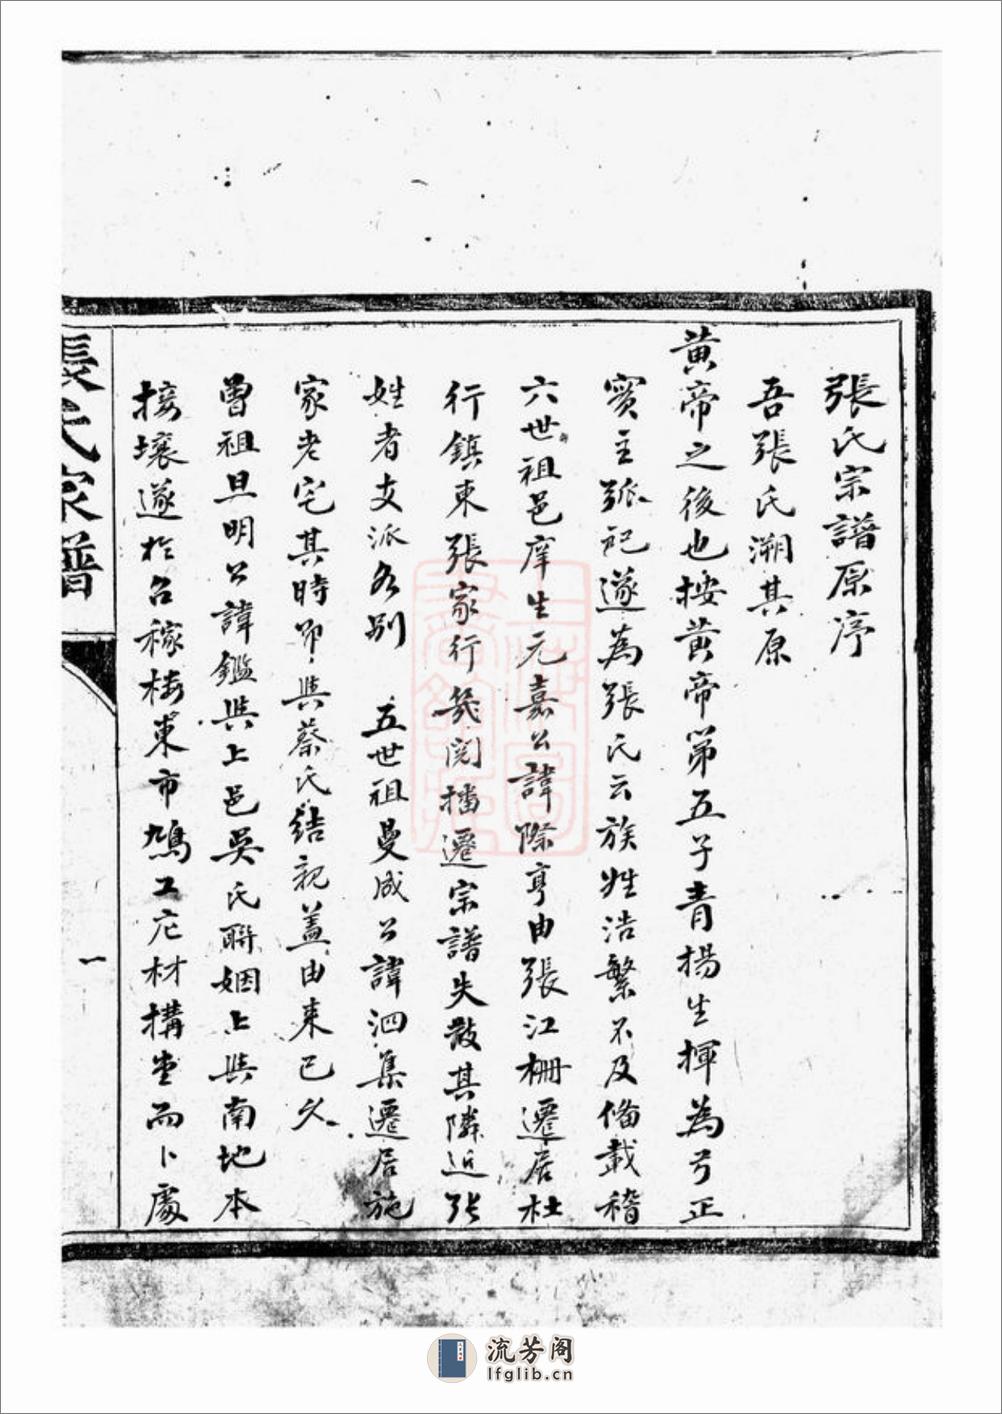 張氏宗譜原序
吾張氏溯其原
黃帝之後也按黃帝第五子青揚生揮為弓正
實主弧祀遂為張氏云族姓浩繁不及備載稽
六世祖邑庠生元嘉公諱際亨由張江柵遷居杜
行鎮東張家行幾閱播遷宗譜失散其隣近張
姓者支派各別 五世祖曼成公諱泗集遷居施
家老宅其時卽與蔡氏結親蓋由來已久
曾祖旦明公諱鑑與上邑吳氏聯姻上與南地本
接壤遂於召稼樓東市鳩工庀材構堂而卜處
張氏家譜
一
流芳阁
lfglib.cn